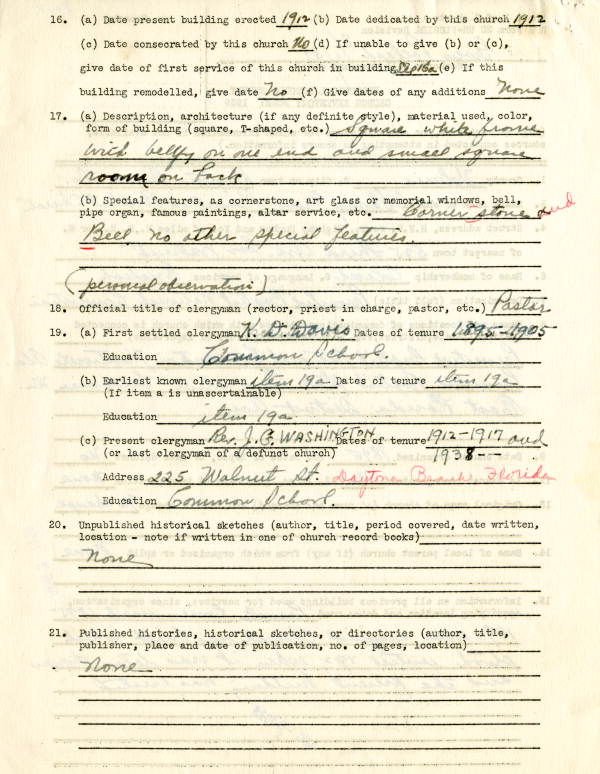 16. (a) Date present building erected 1912 (b) Date dedicated by this church 1912
(c) Date consecrated by this church No (d) If unable to give (b) or (c),
give date of first service of this church in building (e) If this
building remodelled, give date No (f) Give dates of any additions None
17. (a) Description, architecture (if any definite style), material used, color,
form of building (square, T-shaped, etc.) Square white frame
with belfry on one end and small square
room on back
(b) Special features, as cornerstone, art glass or memorial windows, bell,
pipe organ, famous paintings, altar service, etc. Corner stone and
Bell no other special features.
(personal observation)
18. Official title of clergyman (rector, priest in charge, pastor, etc.) Pastor
19. (a) First settled clergyman K. D. Davis Dates of tenure 1895-1905
Education Common School.
(b) Earliest known clergyman item 19a Dates of tenure item 19a
(If item a is unascertainable)
Education item 19a
(c) Present clergyman Rev. J. G. WASHINGTON Dates of tenure 1912-1917 and
(or last clergyman of a defunct church) 1938--
Address 225 Walnut St. Daytona Beach, Florida
Education Common School.
20. Unpublished historical sketches (author, title, period covered, date written,
location - note if written in one of church record books)
None
21. Published histories, historical sketches, or directories (author, title,
publisher, place and date of publication, no. of pages, location)
None